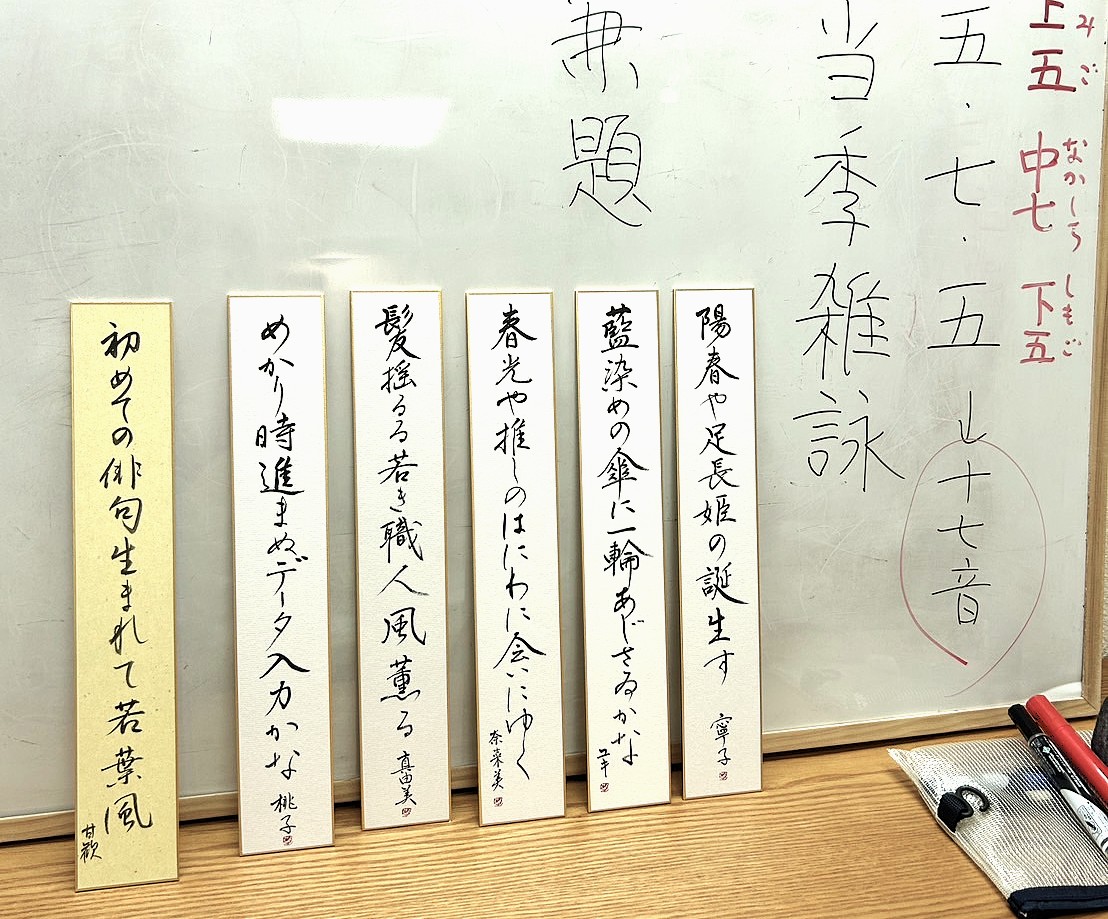 上五 中七 下五
かみご なかしち しもご
五・七・五→十七音
当季雑詠
兼題
陽春や足長姫の誕生す 寧子
藍染めの傘に一輪あじさゐかな ユキ
春光や推しのはにわに会いにゆく 奈菜美
髪揺るる若き職人風薫る 真由美
めかり時進まぬデータ入力かな 桃子
初めての俳句生まれて若葉風 甘歓